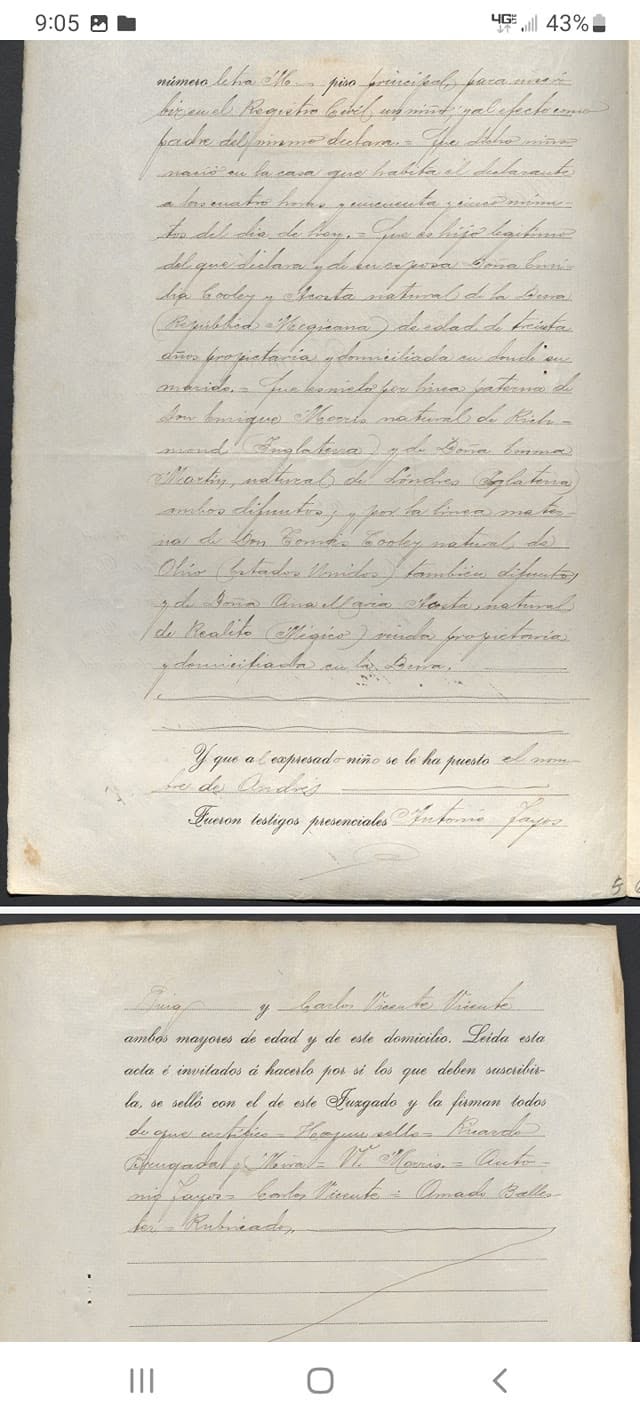 9:05 4GE 43%
número letra M. piso principal, para inscri
bir en el Registro Civil, un niño; y al efecto como
padre del mismo declara.= Que dicho niño
nació en la casa que habita el declarante
a las cuatro horas y cincuenta y cinco minu-
tos del dia de hoy.= Que es hijo legitimo
del que declara y de su esposa Doña Emi-
lia Cooley y Acosta natural de la
(República Megicana) de edad de treinta
años propietaria y domiciliada en donde su
marido.= Que es nieto por linea paterna de
Don Enrique Morris natural de Rich-
mond (Inglaterra) y de Doña Emma
Martin, natural de Lóndres (Iglaterra)
ambos difuntos; y por la linea mater-
na de Don Tomás Cooley natural de
Ohio (Estados Unidos) tambien difunto,
y de Doña Ana Maria Acosta, natural
de Realito (Mégico) viuda propietaria
y domiciliada en la
Y que al expresado niño se le ha puesto el nom-
bre de Andrés
Fueron testigos presenciales Antonio Fayos
5
Puig y Carlos Vicente Vicente
ambos mayores de edad y de este domicilio. Leída esta
acta é invitados á hacerlo por si los que deben suscribir-
la, se selló con el de este Juzgado y la firman todos
de que certifico = Hay un sello = Ricardo
Brugada y Mira = W. Morris. = Anto-
nio Fayos = Carlos Vicente = Amado Balles-
ter = Rubricado,